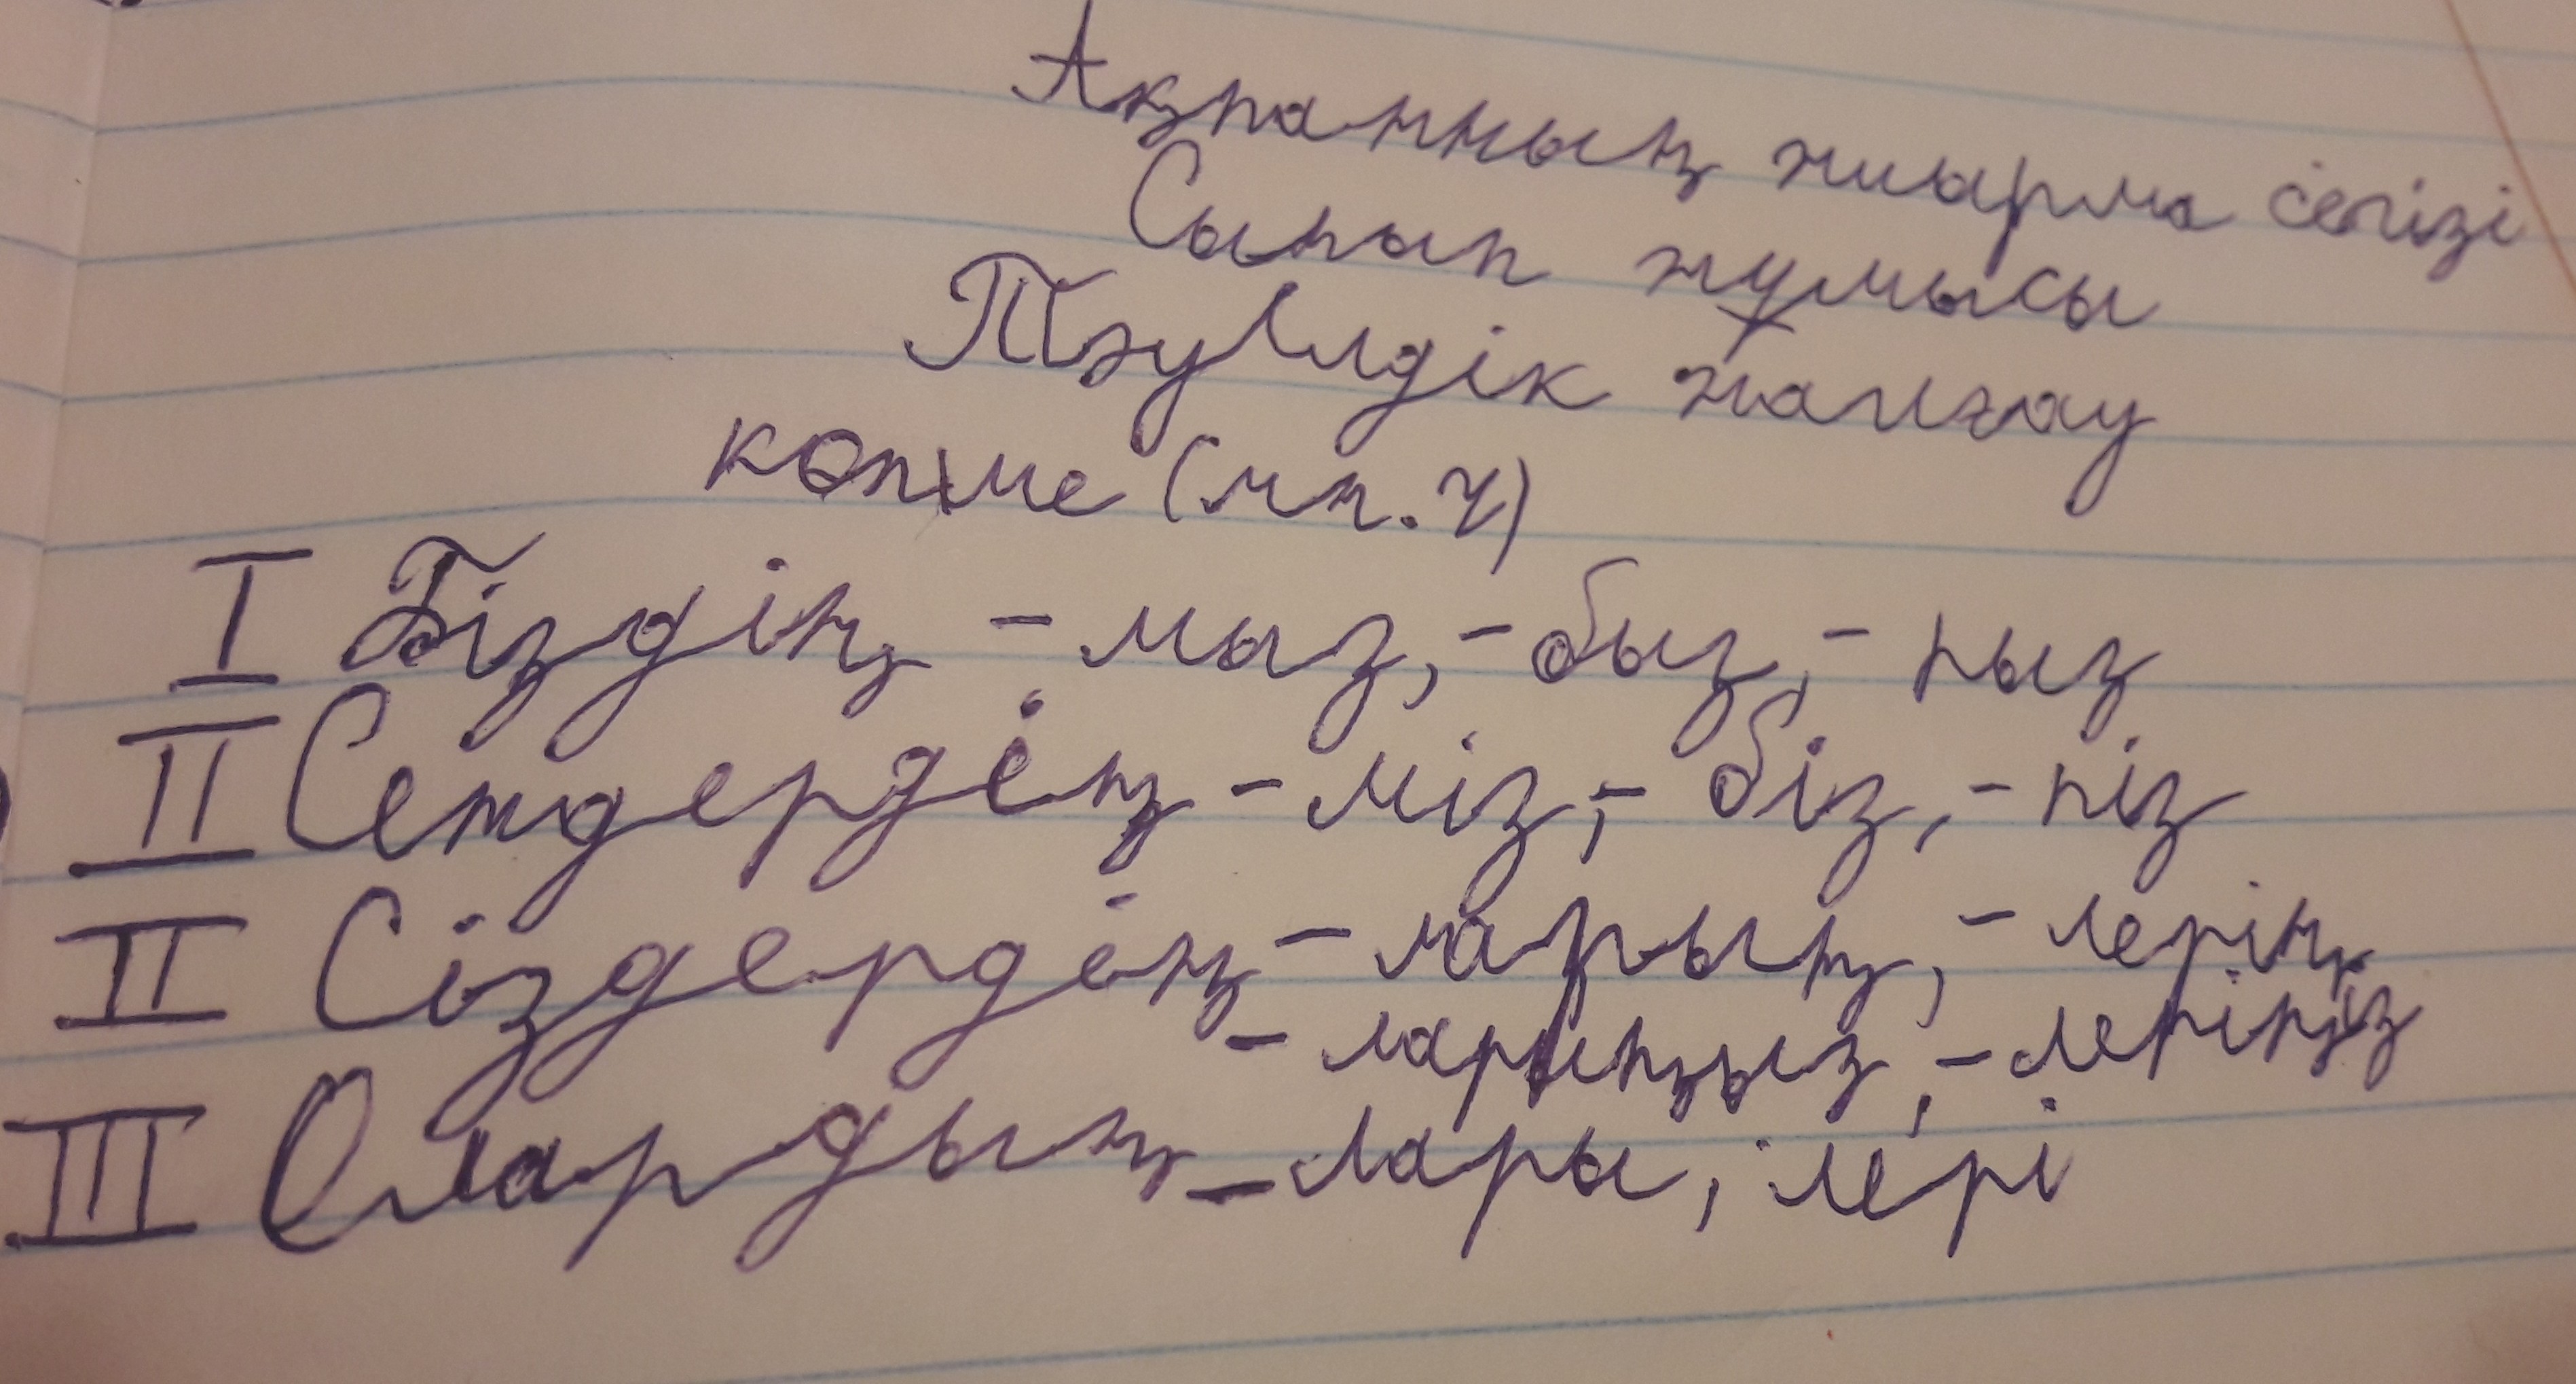 Ақпанның жиырма сегізі
Сынып жұмысы
Тәуелдік жалғау
көпше (мн. ч)
I Біздің - мыз, - быз, - пыз
II Сендердің - міз, - біз, - піз
II Сіздердің - ларың, - лерің
- ларыңыз, - леріңіз
III Олардың - лары, лері